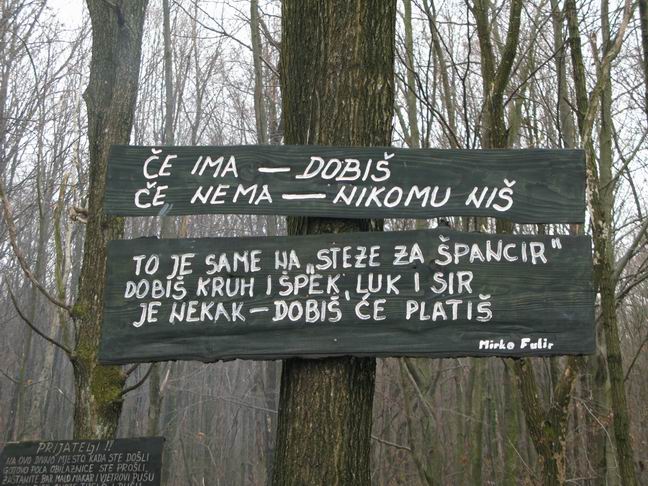 ČE IMA — DOBIŠ
ČE NEMA — NIKOMU NIŠ
TO JE SAME NA „STEZE ZA ŠPANCIR"
DOBIŠ KRUH I ŠPEK, LUK I SIR
JE NEKAK — DOBIŠ ČE PLATIŠ
Mirko Fulir
PRIJATELJI !!
NA OVO DIVNO MJESTO KADA STE DOŠLI
GOTOVO POLA OBILAZNICE STE PROŠLI,
ZASTANITE BAR MALO MAKAR I VJETROVI PUŠU